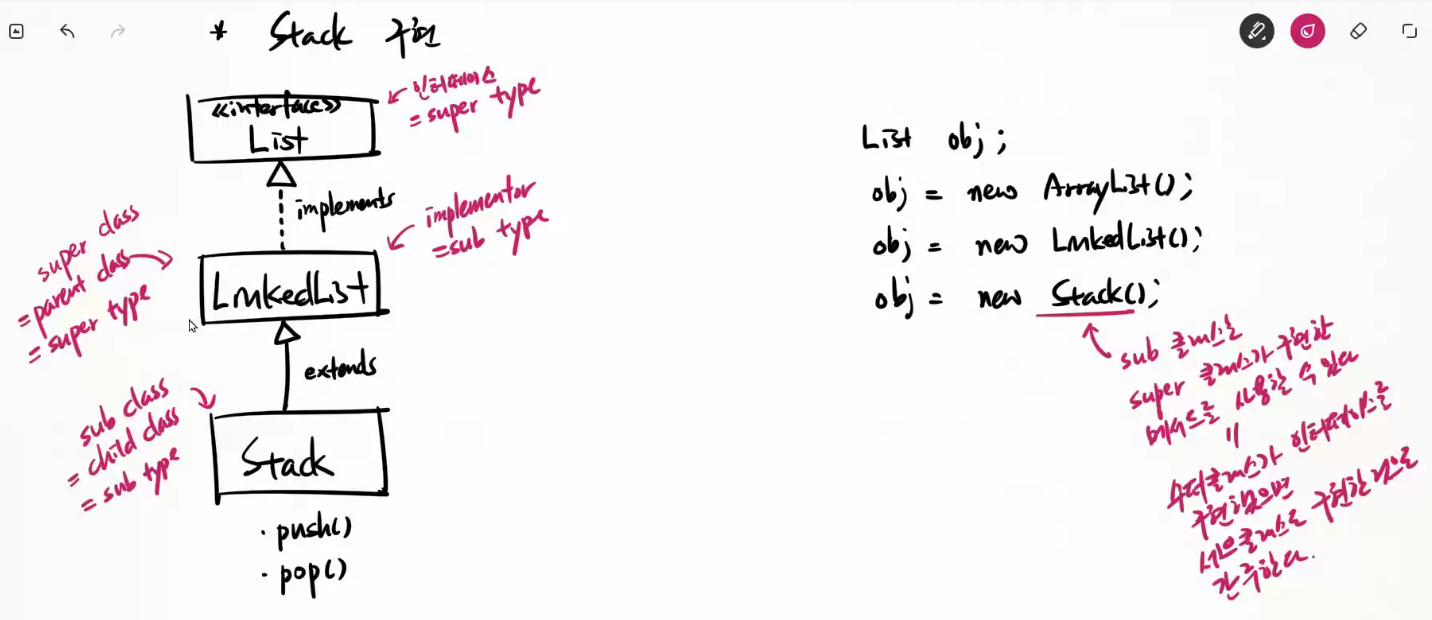 * Stack 구현
<<interface>>
List
← 인터페이스
= super type
implements
implementor
= sub type
super class
= parent class
= super type
LinkedList
extends
sub class
= child class
= sub type
Stack
· push()
· pop()
List obj;
obj = new ArrayList();
obj = new LinkedList();
obj = new Stack();
sub 클래스는
super 클래스가 구현한
메서드를 사용할 수 있다
=
수퍼클래스가 인터페이스를
구현했으면
서브클래스도 구현한 것으로
간주한다.